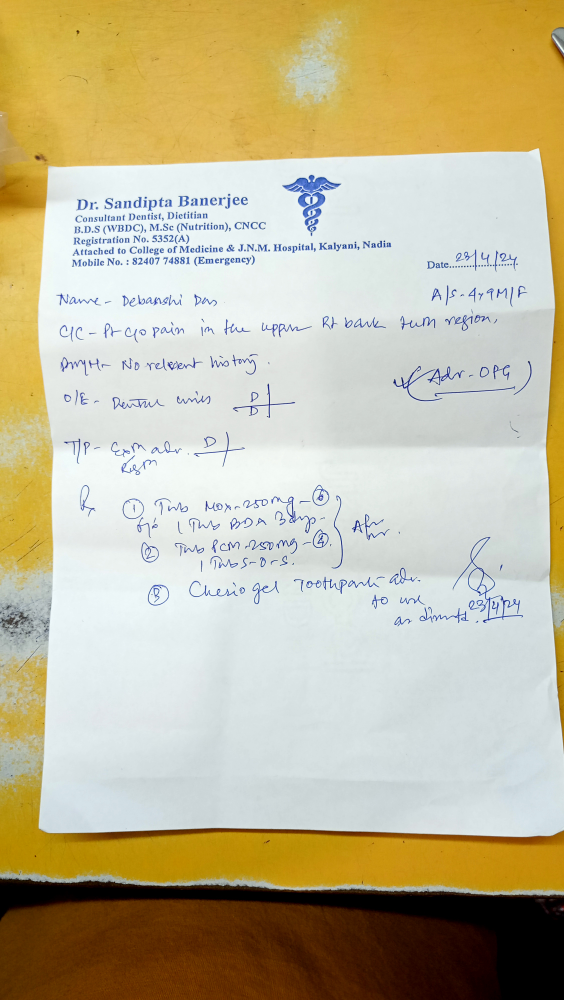 Dr. Sandipta Banerjee
Consultant Dentist, Dietitian
B.D.S (WBDC), M.Sc (Nutrition), CNCC
Registration No. 5352(A)
Attached to College of Medicine & J.N.M. Hospital, Kalyani, Nadia
Mobile No. : 82407 74881 (Emergency)
Date 23/4/24
Name - Debanshi Das
A/S - 4y 9M/F
C/C - Pt c/o pain in the upper Rt back region.
No relevant history.
O/E - Dental caries D D
(Adv - OPG)
T/P - adv. D
Rx
① Tab Mox-250mg - ⑥
1 Tab BDA 3days
② Tab PCM-250mg -
1 Tab S-O-S.
③ gel Toothpaste adv.
to use
as directed.
23/4/24